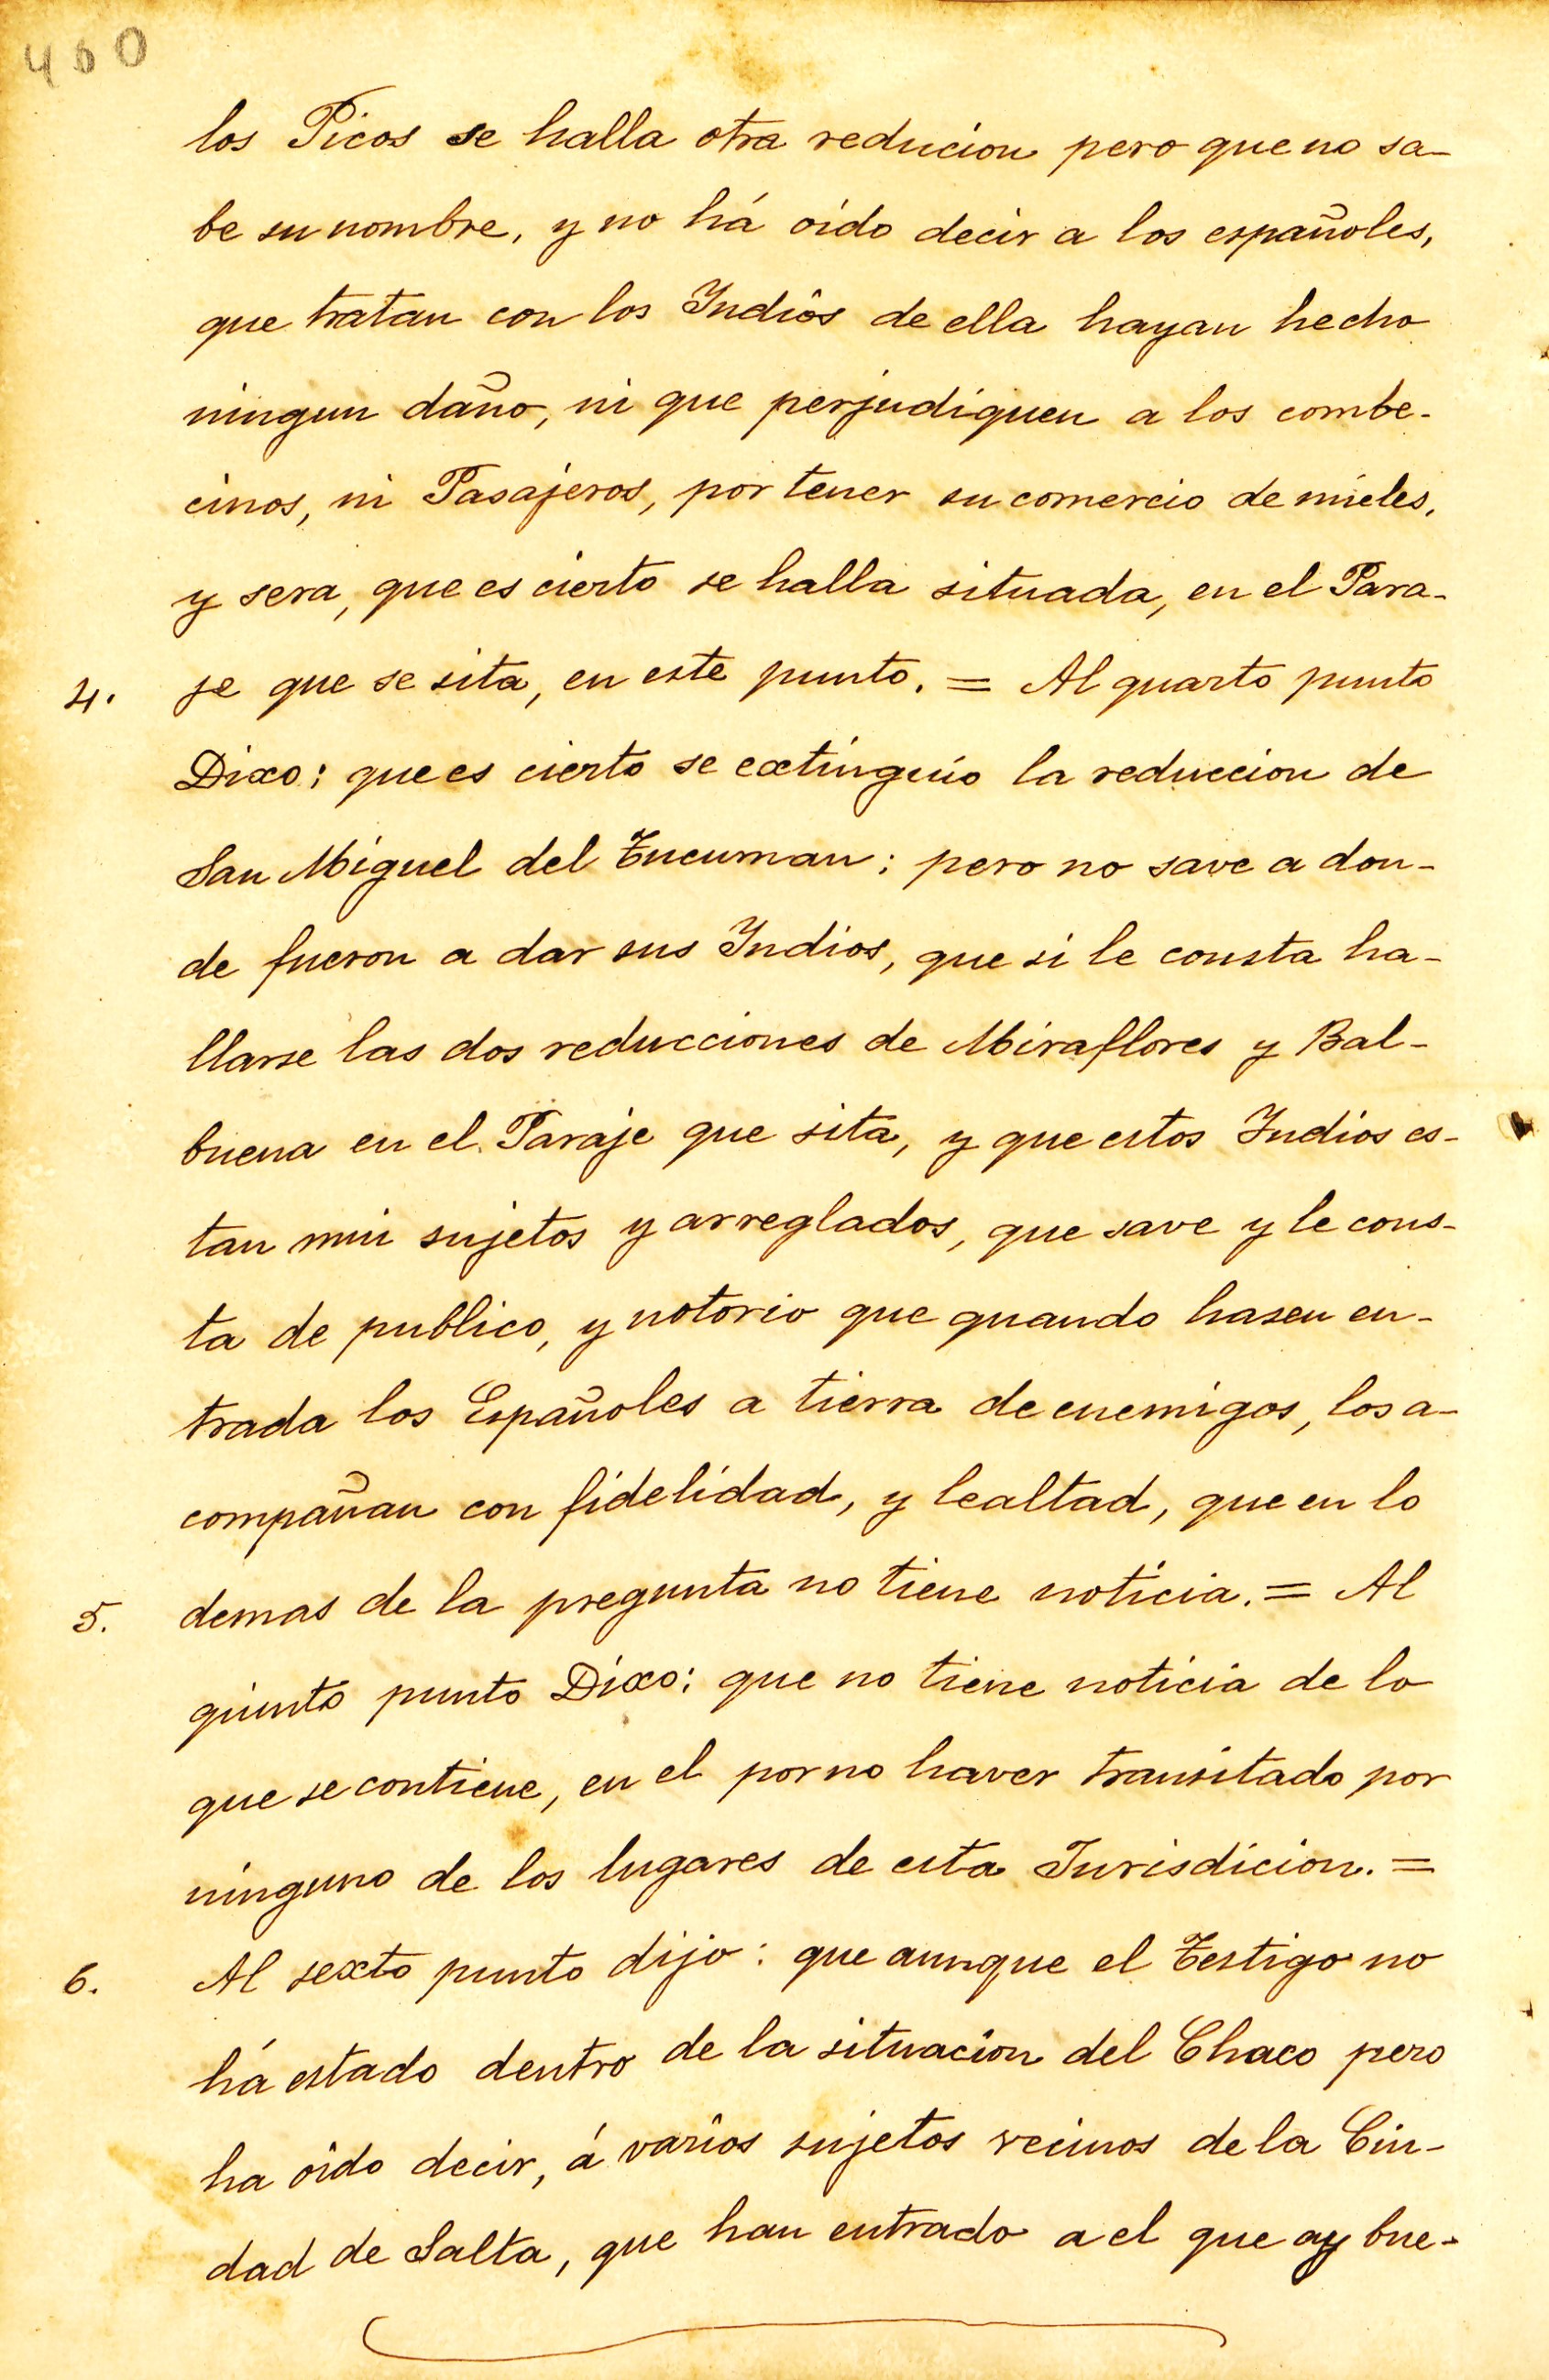 460
los Picos se halla otra reducion pero que no sa-
be su nombre, y no há oído decir a los españoles,
que tratan con los Indiôs de ella hayan hecho
ningun daño, ni que perjudiquen a los combe-
cinos, ni Pasajeros, por tener su comercio de mieles,
y sera, que es cierto se halla situada, en el Para-
4. je que se sita, en este punto. = Al quarto punto
Dixo: que es cierto se extinguio la reduccion de
San Miguel del Tucuman: pero no save a don-
de fueron a dar sus Indios, que si le consta ha-
llarse las dos reducciones de Miraflores y Bal-
buena en el Paraje que sita, y que estos Indios es-
tan mui sujetos y arreglados, que save y le cons-
ta de publico, y notorio que quando hasen en-
trada los Españoles a tierra de enemigos, los a-
compañan con fidelidad, y lealtad, que en lo
5. demas de la pregunta no tiene noticia. = Al
quinto punto Dixo: que no tiene noticia de lo
que se contiene, en el por no haver transitado por
ninguno de los lugares de esta Jurisdicion. =
6. Al sexto punto dijo: que aunque el Testigo no
há estado dentro de la situacion del Chaco pero
ha oîdo decir, á varios sujetos vecinos de la Ciu-
dad de Salta, que han entrado a el que ay bue-